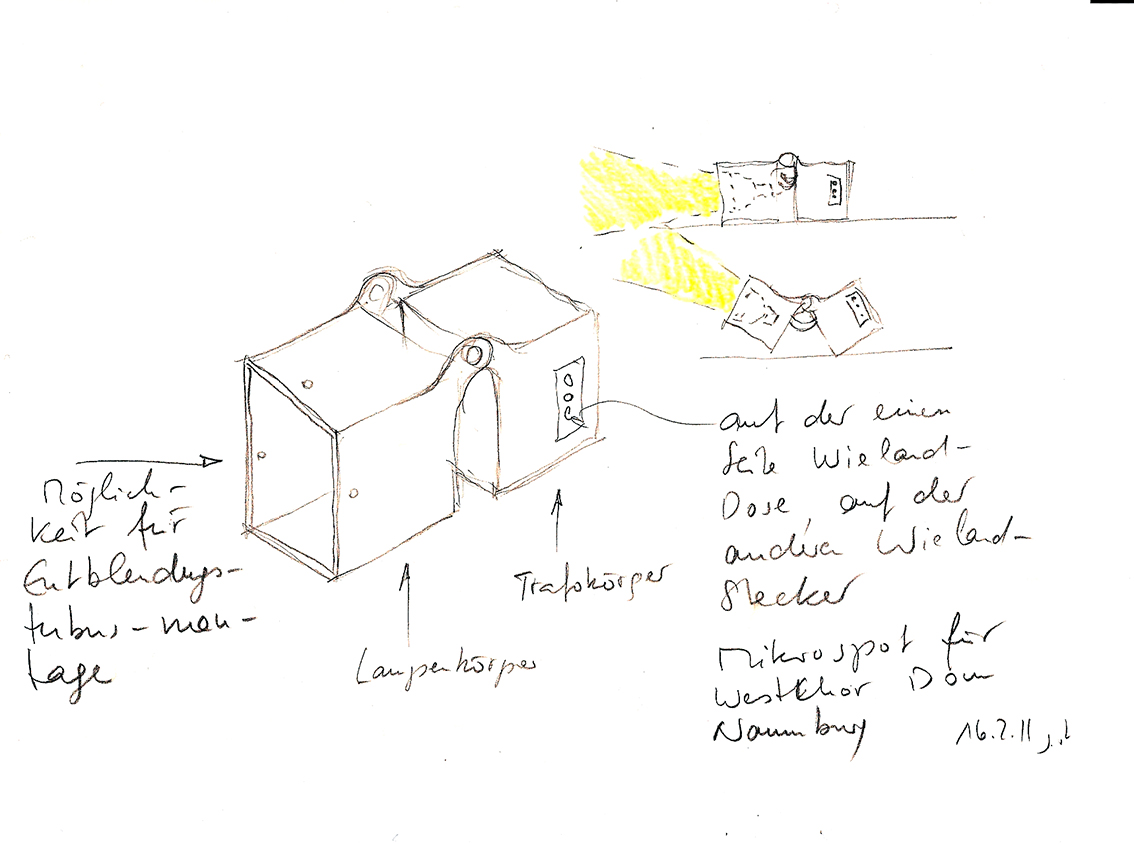 Möglich-
keit für
Entblendungs-
tubus-mon-
tage
Lampenkörper
Trafokörper
auf der einen
Seite Wieland-
Dose, auf der
andern Wieland-
Stecker
Mikrospot für
Westchor Dom
Naumburg
16.2.11